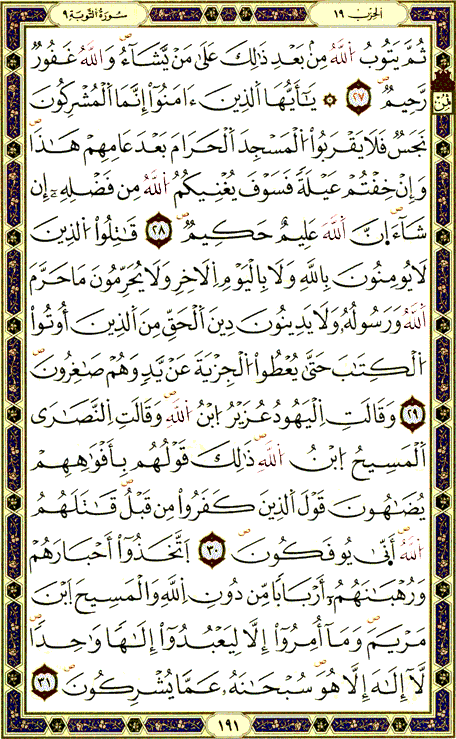 سُورَةُ التَّوْبَةِ ٩
الحِزْب ١٩
ثُمَّ يَتُوبُ اَ۬للَّهُ مِنۢ بَعْدِ ذَٰلِكَ عَلَىٰ مَنْ يَّشَآءُۖ وَاللَّهُ غَفُورٞ
رَّحِيمٞۖ ٢٧ ۞ يَٰٓأَيُّهَا اَ۬لذِينَ ءَامَنُوٓاْ إِنَّمَا اَ۬لْمُشْرِكُونَ
نَجَسٞ فَلَا يَقْرَبُواْ اُ۬لْمَسْجِدَ اَ۬لْحَرَامَ بَعْدَ عَامِهِمْ هَٰذَاۖ
وَإِنْ خِفْتُمْ عَيْلَةٗ فَسَوْفَ يُغْنِيكُمُ اُ۬للَّهُ مِن فَضْلِهِۦٓ إِن
شَآءَۖ اِنَّ اَ۬للَّهَ عَلِيمٌ حَكِيمٞۖ ٢٨ قَٰتِلُواْ اُ۬لذِينَ
لَا يُومِنُونَ بِاللَّهِ وَلَا بِالْيَوْمِ اِ۬لَاخِرِ وَلَا يُحَرِّمُونَ مَا حَرَّمَ
اَ۬للَّهُ وَرَسُولُهُۥ وَلَا يَدِينُونَ دِينَ اَ۬لْحَقِّ مِنَ اَ۬لذِينَ أُوتُواْ
اُ۬لْكِتَٰبَ حَتَّىٰ يُعْطُواْ اُ۬لْجِزْيَةَ عَنْ يَّدٖ وَهُمْ صَٰغِرُونَۖ
٢٩ وَقَالَتِ اِ۬لْيَهُودُ عُزَيْرُ اُ۪بْنُ اُ۬للَّهِۖ وَقَالَتِ اِ۬لنَّصَٰرَى
اَ۬لْمَسِيحُ اُ۪بْنُ اُ۬للَّهِۖ ذَٰلِكَ قَوْلُهُم بِأَفْوَٰهِهِمْۖ
يُضَٰهُونَ قَوْلَ اَ۬لذِينَ كَفَرُواْ مِن قَبْلُۖ قَٰتَلَهُمُ
اُ۬للَّهُۖ أَنَّىٰ يُوفَكُونَۖ ٣٠ اَ۪تَّخَذُوٓاْ أَحْبَارَهُمْ
وَرُهْبَٰنَهُمُۥٓ أَرْبَاباٗ مِّن دُونِ اِ۬للَّهِ وَالْمَسِيحَ اَ۪بْنَ
مَرْيَمَۖ وَمَآ أُمِرُوٓاْ إِلَّا لِيَعْبُدُوٓاْ إِلَٰهاٗ وَٰحِداٗۖ
لَّآ إِلَٰهَ إِلَّا هُوَۖ سُبْحَٰنَهُۥ عَمَّا يُشْرِكُونَۖ ٣١
١٩١